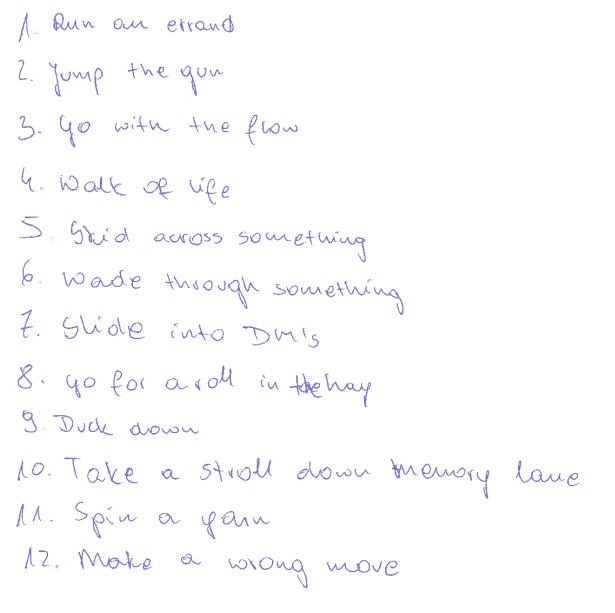 1. Run an errand
2. Jump the gun
3. Go with the flow
4. Walk of life
5. Skid across something
6. Wade through something
7. Slide into DM's
8. Go for a roll in the hay
9. Duck down
10. Take a stroll down memory lane
11. Spin a yarn
12. Make a wrong move